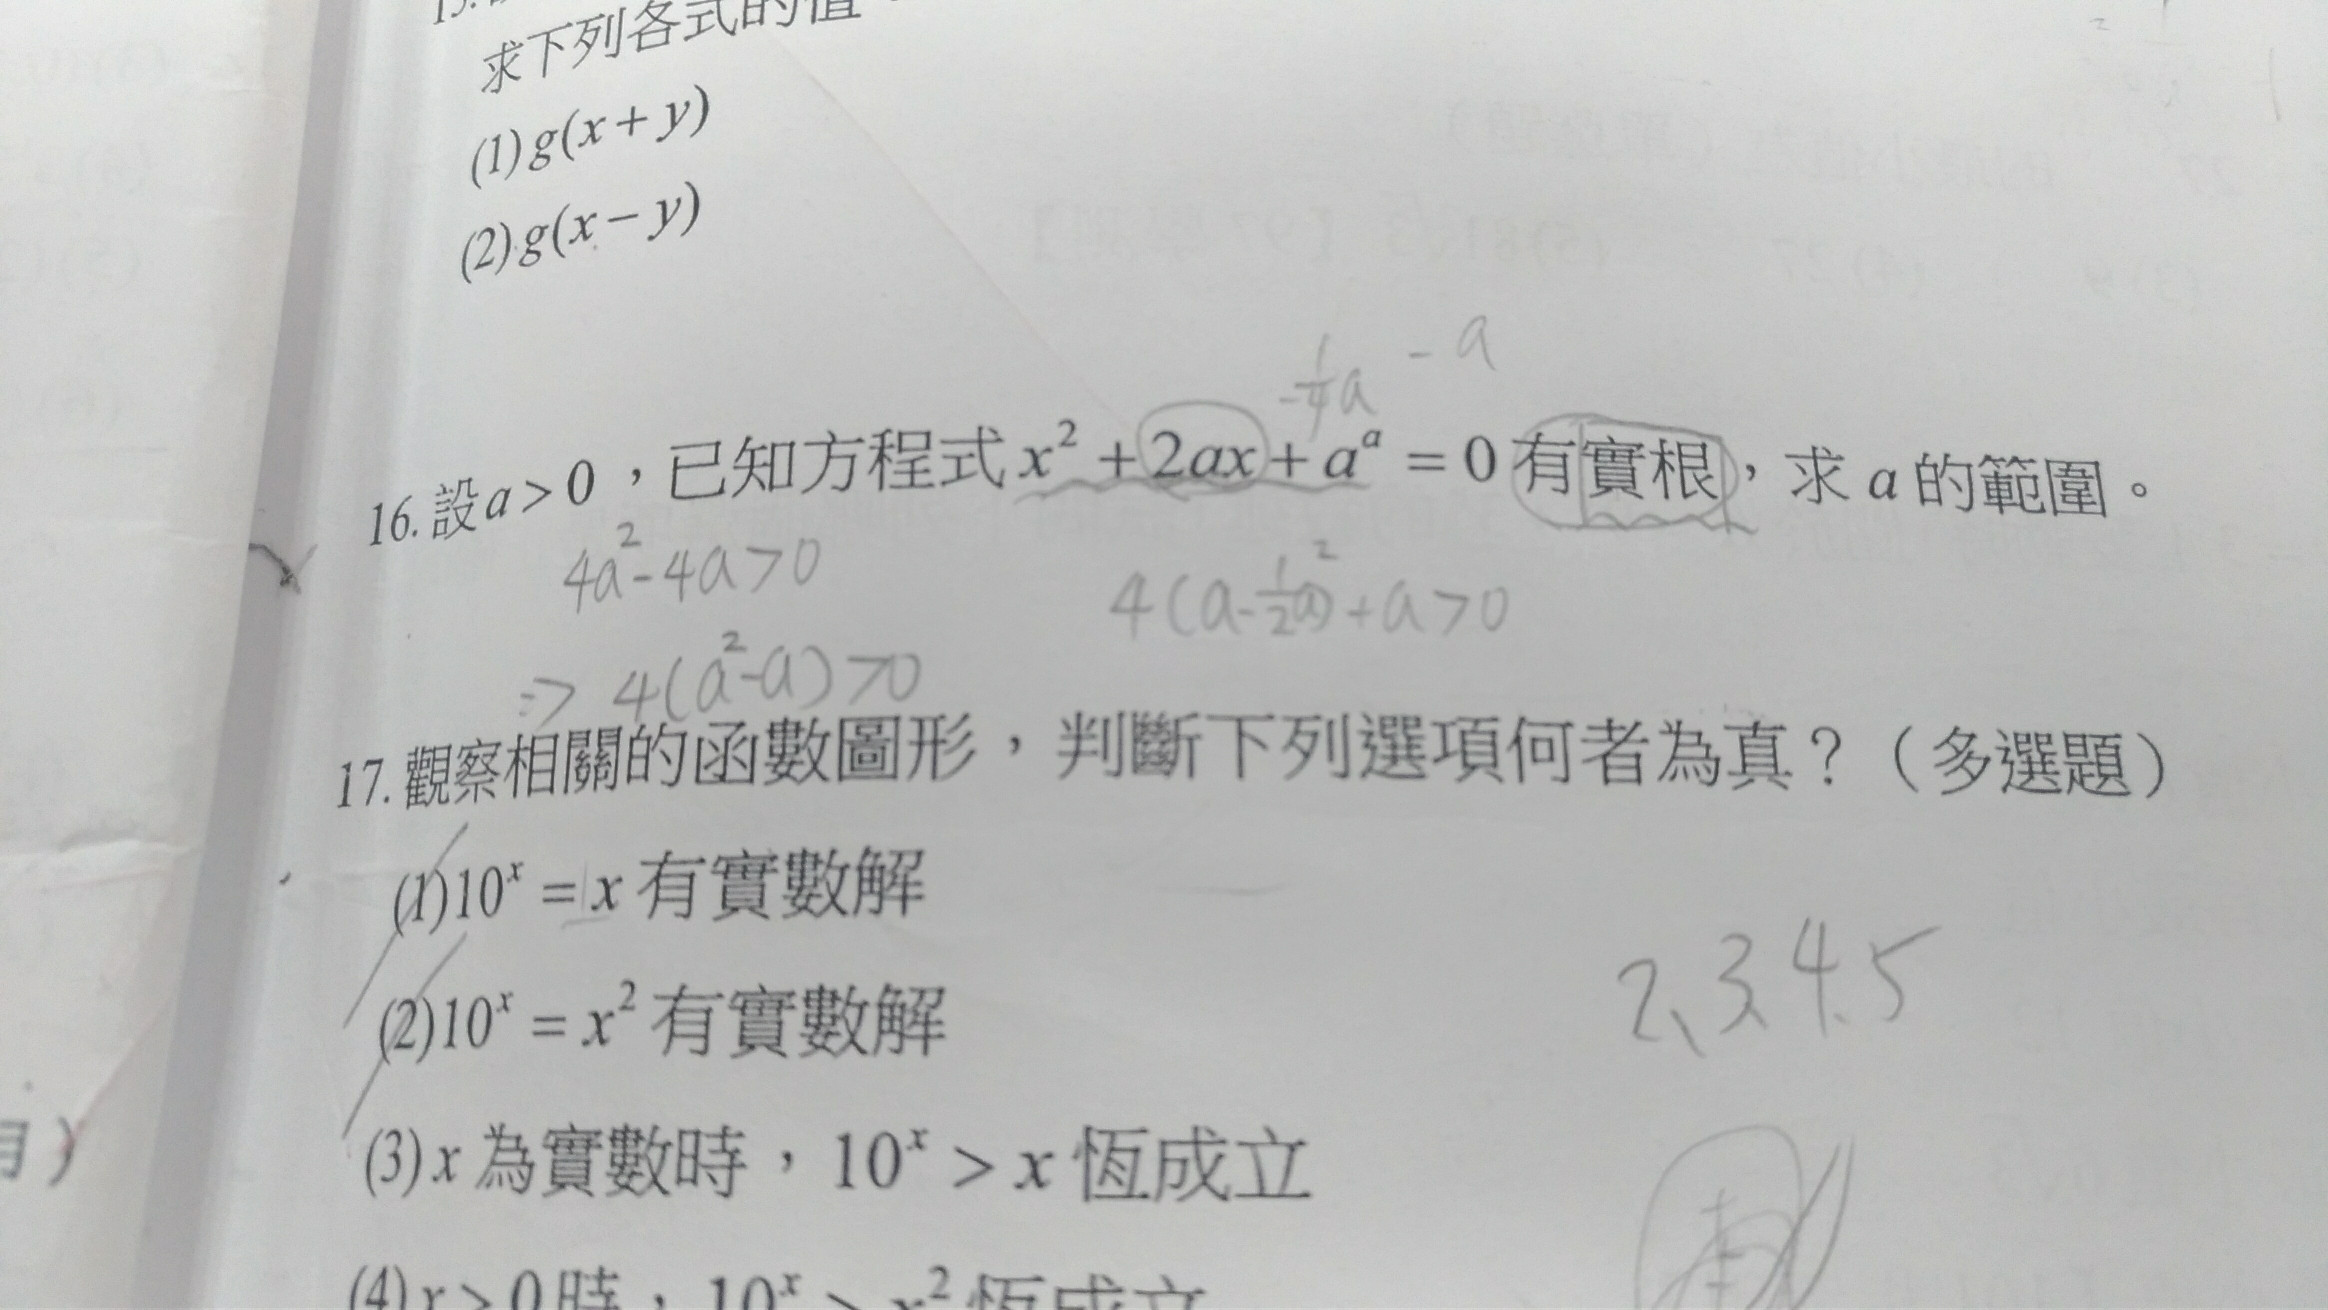 求下列各式的值
(1)g(x+y)
(2)g(x−y)
−¼a −a
16.設a>0，已知方程式x²+2ax+aᵃ=0有實根，求a的範圍。
4a²-4a>0
4(a-½a)²+a>0
=> 4(a²-a)>0
17.觀察相關的函數圖形，判斷下列選項何者為真？（多選題）
(1)10ˣ=x有實數解
(2)10ˣ=x²有實數解
2,3,4,5
(3)x為實數時，10ˣ>x恆成立
(4)x>0時，10ˣ>x²恆成立